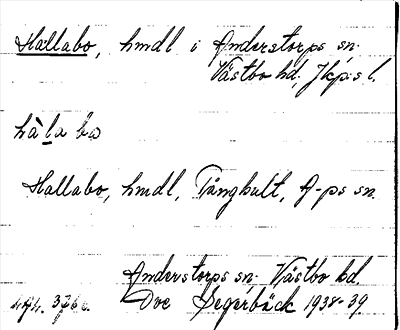 Hallabo, hmdl i Anderstorps sn.
Västbo hd, Jkp.s l.
hà la bo
Hallabo, hmdl, Tånghult, A-ps sn.
Anderstorps sn. Västbo hd.
Ove Segerbäck 1938-39.